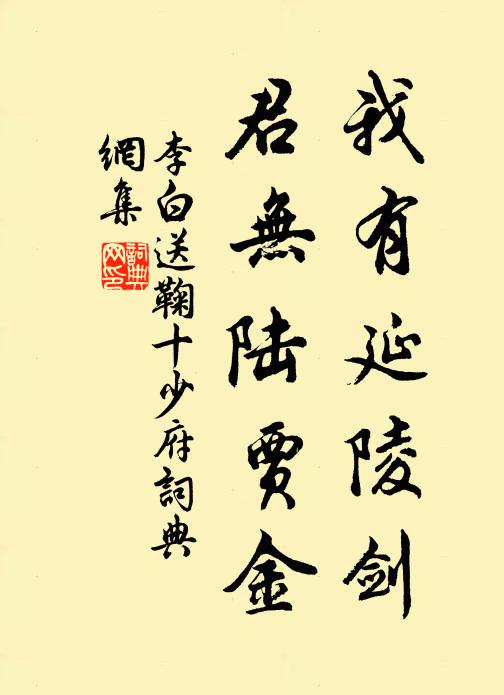 我有延陵剑
君無陆贾金
李白送鞠十少府詞典
網集
詞典网印